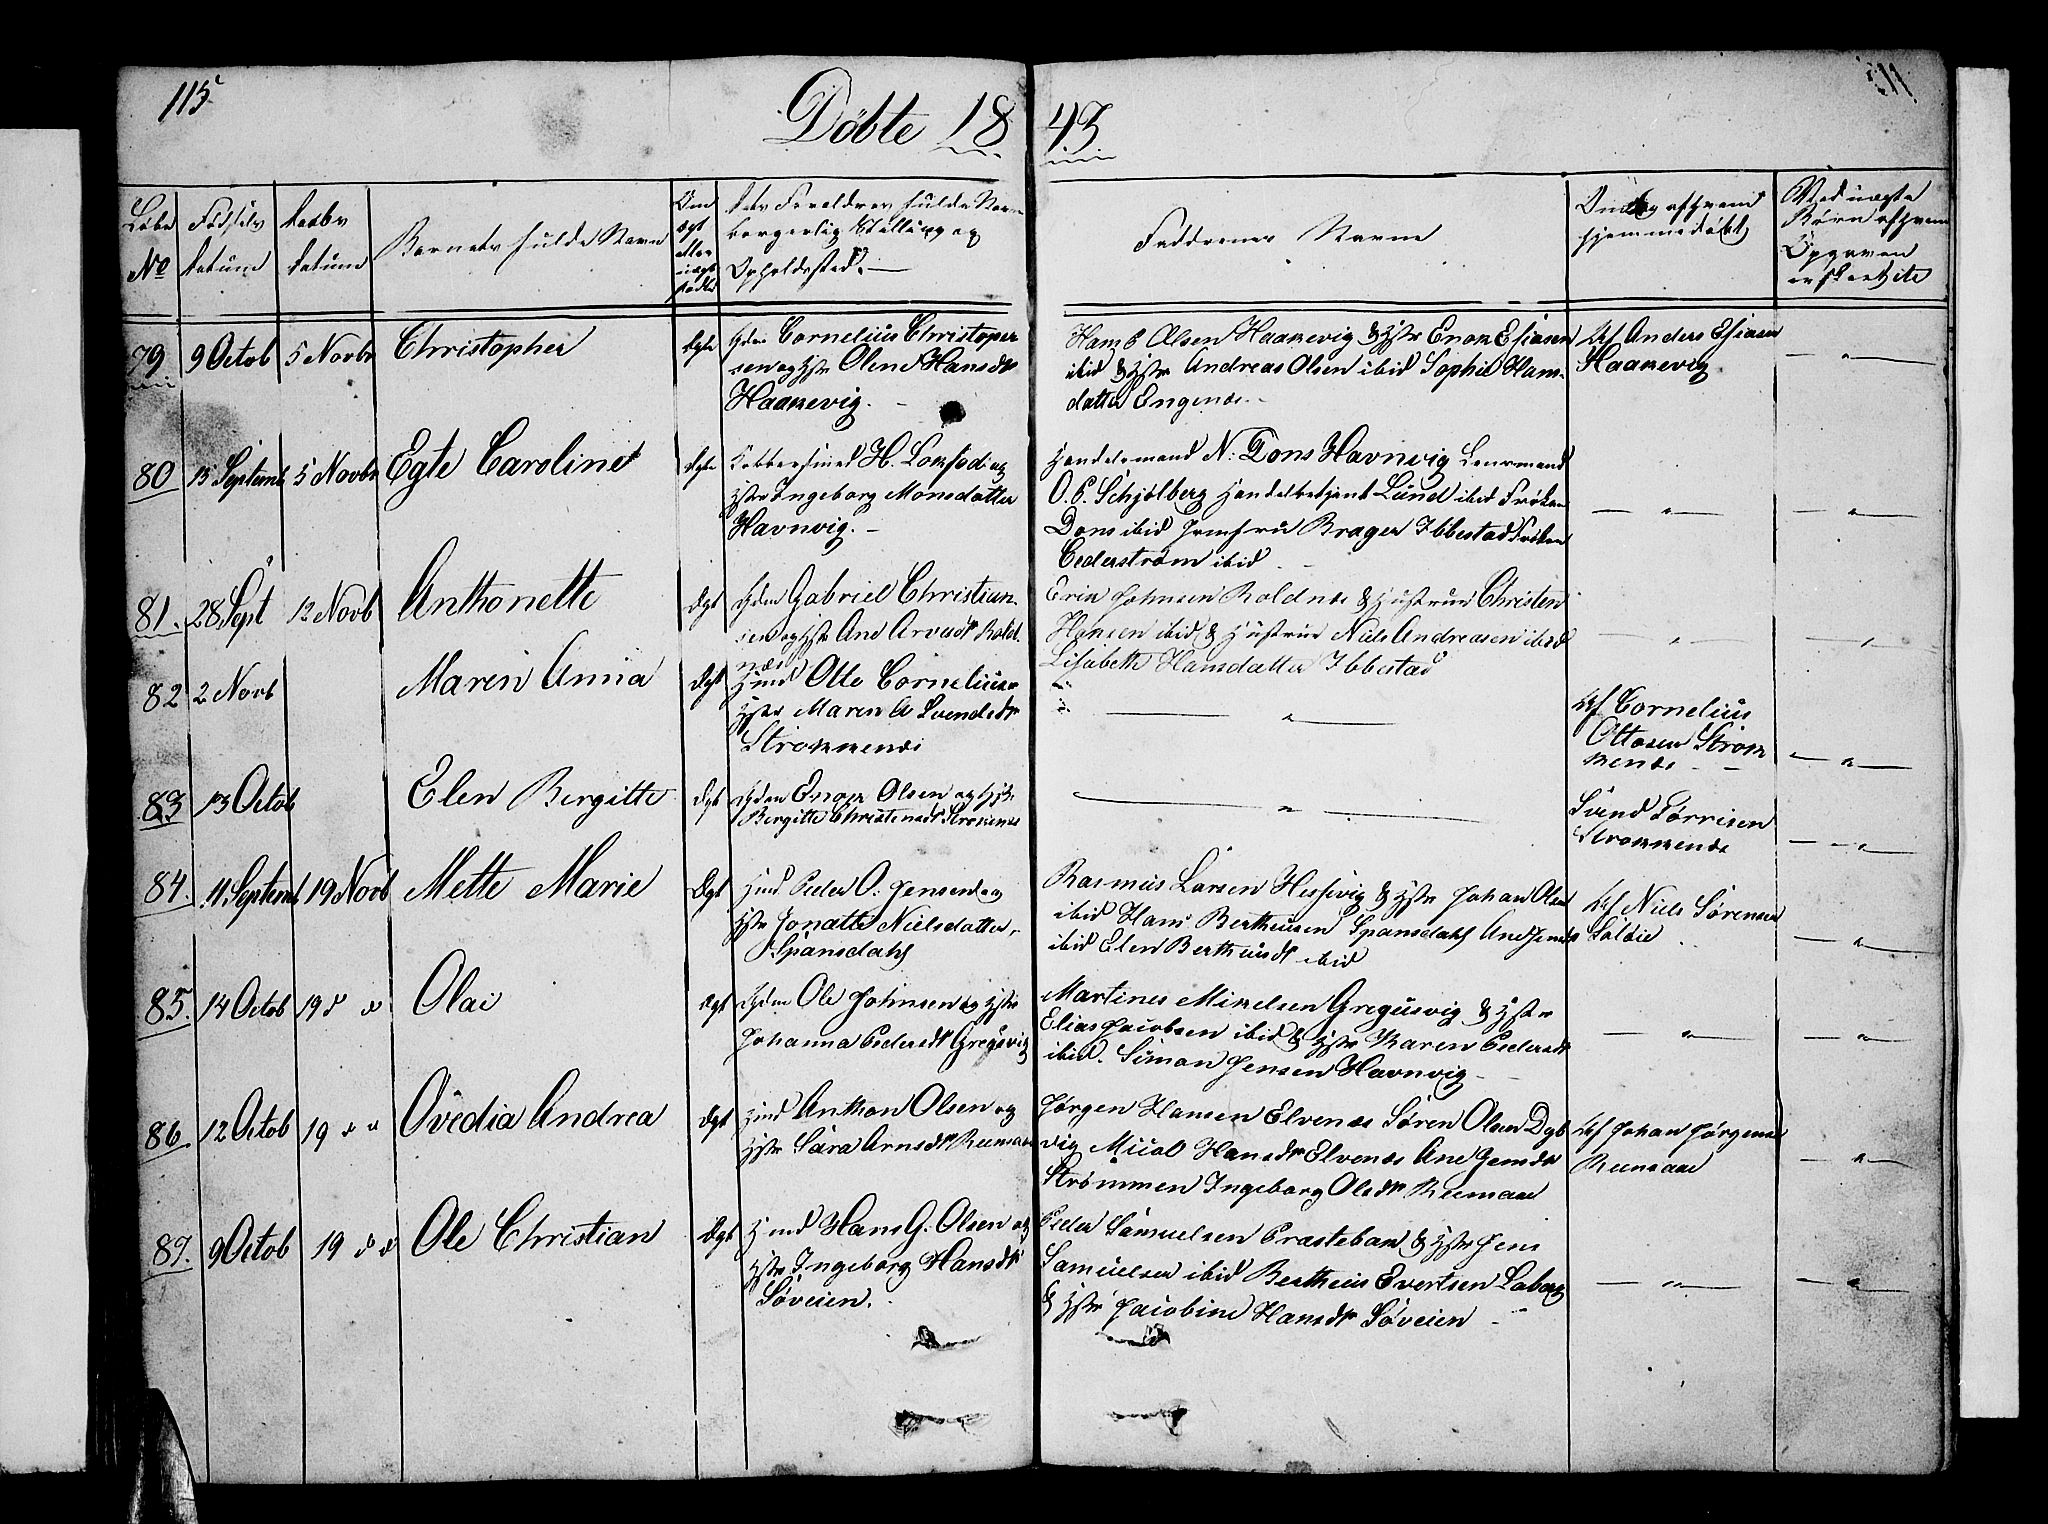 115
Döbte 18 43
Løbe No
Fødsels datum
Daabs datum
Barnets fulde Navn
Om ægt eller uægt født
dets Forældres fulde Navn borgerlig Stilling og Opholdssted.
Faddrenes Navne
Om og af hvem hjemmedøbt
Ved uægte Børn af hvem Opgaven er skeet &c
79 9 Octob 5 Novbr Christopher Ægte
Cornelius Christopher
sen og Hstr Olene Hansdtr
Haakevig.
Hans Olsen Haakevig & Hstr Enok Esiasen
ibid & Hstr Andreas Olsen ibid Sophie Hans-
datter Engenæs
af Anders Esiasen
Haakevig
80 15 Septemb 5 Novbr Egte Caroline Ægte
H.
Hstr Ingeborg Monsdatter
Havnvig.
Handelsmand N: Dons Havnvig Lensmand
O. P. Schjølberg Handelsbetjent Lund ibid Frøken
Dons ibid Jomfru Brager Ibbestad Frøken
Cederstrøm ibid
81. 28 Sept 12 Novb Anthonette Ægt
Gabriel Christian-
sen og Hstr Ane Arvedt Rold-
næs
Erik Johnsen Roldnæs & Hustrue Christen
Hansen ibid & Hustrue Niels Andreasen ibid
Lisabeth Hansdatter Ibbestad
82 2 Novb Maren Anna Ægt
Hmd Otte Cornelius
Hstr Maren A Svendsdtr
Strokkenæs
af Cornelius
Ottosen Strok
kenæs
83 13 Octob Elen Bergitte Ægt
Enok Olsen og Hstr
Bergitte Christensdtr Strokenæs
Svend Tørrisen
Strokkenæs
84. 11 Septemb 19 Novb Mette Marie Ægt
Hmd Peder O. Jensen og
Hstr Jonette Nielsdatter
Spansdahl
Rasmus Larsen Hessvig & Hstr Johan Olsen
ibid Hans Bertheusen Spansdahl Ane Jensdtr
ibid Elen Bertheusdt ibid
af Niels Sørensen
85. 14 Octob 19 d o Olai Ægt
Ole Johnsen og Hstr
Johanna Pedersdt Gregusvig
Martines Mikelsen Gregusvig & Hstr
Elias Jacobsen ibid & Hstr Karen Pedersdt
ibid. Simon Jensen Havnvig
86. 12 Octob 19 Ovedia Andrea Ægt
Hmd Anthon Olsen og
Hstr Sara Arnsdtr Reensaae
Jørgen Hansen Elvenæs Søren Olsen Dyb
vig Micol Hansdtr Elvenæs Ane Jensdtr
Strømmen Ingeborg Olsdtr Reensaae
af Johan Jørgensen
Reensaae
87. 9 Octob 19 Ole Christian Ægt
Hmd Hans G. Olsen og
Hstr Ingeborg Hansdtr
Søveien.
Peder Samuelsen Prestebak & Hstr Jens
Samuelsen ibid Bertheus Evertsen Laberg
& Hstr Jacobine Hansdtr Søveien